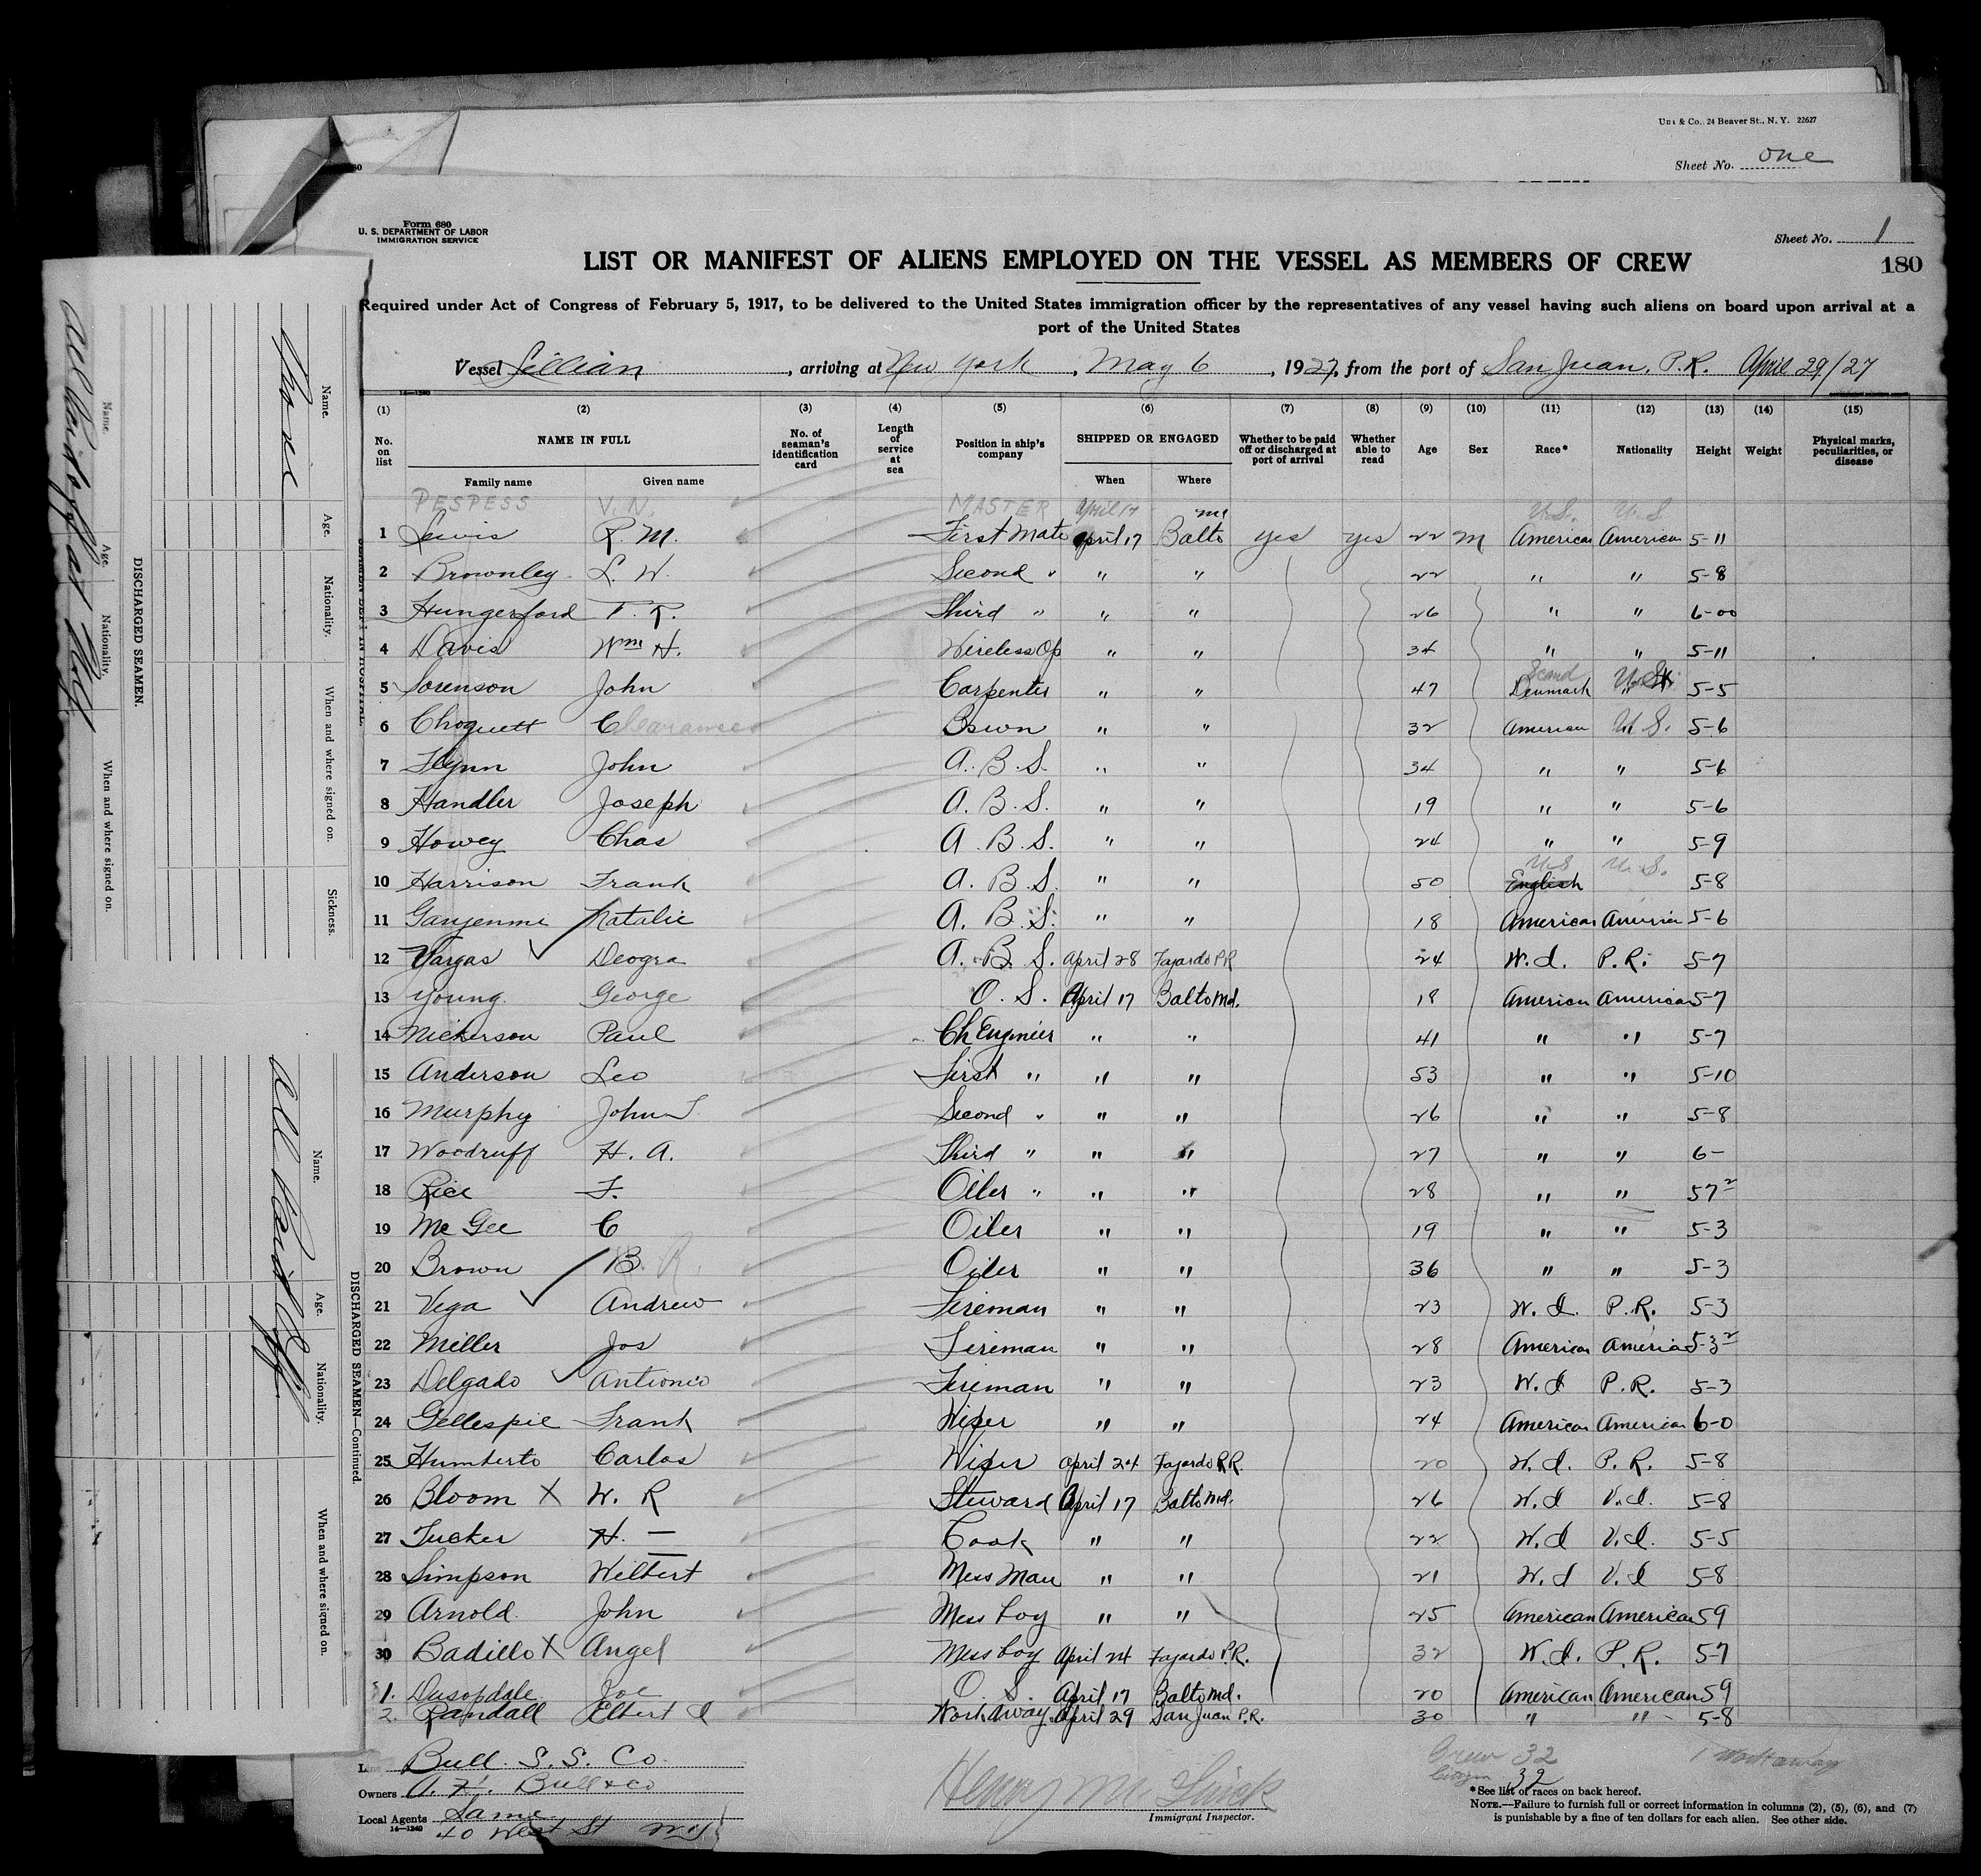 Uni & Co., 24 Beaver St., N. Y. 22627
Sheet No. one
Form 680
U. S. DEPARTMENT OF LABOR
IMMIGRATION SERVICE
Sheet No. 1
LIST OR MANIFEST OF ALIENS EMPLOYED ON THE VESSEL AS MEMBERS OF CREW
180
Required under Act of Congress of February 5, 1917, to be delivered to the United States immigration officer by the representatives of any vessel having such aliens on board upon arrival at a
port of the United States
Vessel Lillian, arriving at New York, May 6, 1927, from the port of San Juan, P.R. April 29/27
14—1240
(1) (2) (3) (4) (5) (6) (7) (8) (9) (10) (11) (12) (13) (14) (15)
No. on list NAME IN FULL No. of seaman's identification card Length of service at sea Position in ship's company SHIPPED OR ENGAGED Whether to be paid off or discharged at port of arrival Whether able to read Age Sex Race* Nationality Height Weight Physical marks, peculiarities, or disease
Family name Given name When Where
PESPESS V. N. MASTER April 17 U.S. U.S
1 Lewis R. M. First Mate April 17 Balto Md yes yes 22 M American American 5-11
2 Brownley L. W. Second " " " 22 " " 5-8
3 Hungerford T. R. Third " " " 26 " " 6-00
4 Davis Wm H. Wireless Op " " 34 " " 5-11
5 Sorenson John Carpenter " " 47 Scand Denmark U.S. 5-5
6 Choquett Clearance Bswn " " 32 American U.S. 5-6
7 Flynn John A. B. S. " " 34 " " 5-6
8 Handler Joseph A. B. S. " " 19 " " 5-6
9 Howey Chas A. B. S. " " 24 " " 5-9
10 Harrison Frank A. B. S. " " 50 English U.S U.S. 5-8
11 Ganjenmi Natalie A. B. S. " " 18 American American 5-6
12 Vargas Deogra A. B. S. April 28 Fajardo P.R 24 W. I. P. R. 5-7
13 Young George O. S. April 17 Balto Md. 18 American American 5-7
14 Nickerson Paul Ch Engineer " " 41 " " 5-7
15 Anderson Leo First " " " 53 " " 5-10
16 Murphy John T Second " " " 26 " " 5-8
17 Woodruff H. A. Third " " " 27 " " 6-
18 Rice F. Oiler " " " 28 " " 57 2
19 Mc Gee C Oiler " " 19 " " 5-3
20 Brown B. R. Oiler " " 36 " " 5-3
21 Vega Andrew Fireman " " 23 W. I. P. R. 5-3
22 Miller Jos Fireman " " 28 American American 5-3 2
23 Delgado Antionio Fireman " " 23 W. I P. R. 5-3
24 Gellespie Frank Wiper " " 24 American American 6-0
25 Humberto Carlos Wiper April 24 Fajardo P.R. 20 W. I. P. R. 5-8
26 Bloom X W. R Steward April 17 Balto Md. 26 W. I V. I. 5-8
27 Tucker H. — Cook " " 22 W. I V. I. 5-5
28 Simpson Welbert Mess Man " " 21 W. I V. I 5-8
29 Arnold John Mess boy " " 25 American American 59
30 Badillo X Angel Mess boy April 24 Fajardo P.R. 32 W. I. P. R. 5-7
31. Dusopdale Joe O. S. April 17 Balto Md. 20 American American 59
2. Randall Elbert I Workaway April 29 San Juan P.R. 30 " " 5-8
Line Bull S. S. Co.
Owners A. H. Bull & Co
Local Agents Same
14—1240 40 West St N.Y.
Immigrant Inspector.
Crew 32
Citizen 32
1 Workaway
*See list of races on back hereof.
NOTE.—Failure to furnish full or correct information in columns (2), (5), (6), and (7)
is punishable by a fine of ten dollars for each alien. See other side.
SEAMEN LEFT IN HOSPITAL.
Name. Age. Nationality. When and where signed on. Sickness.
None
DISCHARGED SEAMEN.
Name. Age. Nationality. When and where signed on.
All Paid off at N.Y
DISCHARGED SEAMEN—Continued.
Name. Age. Nationality. When and where signed on.
All Paid off